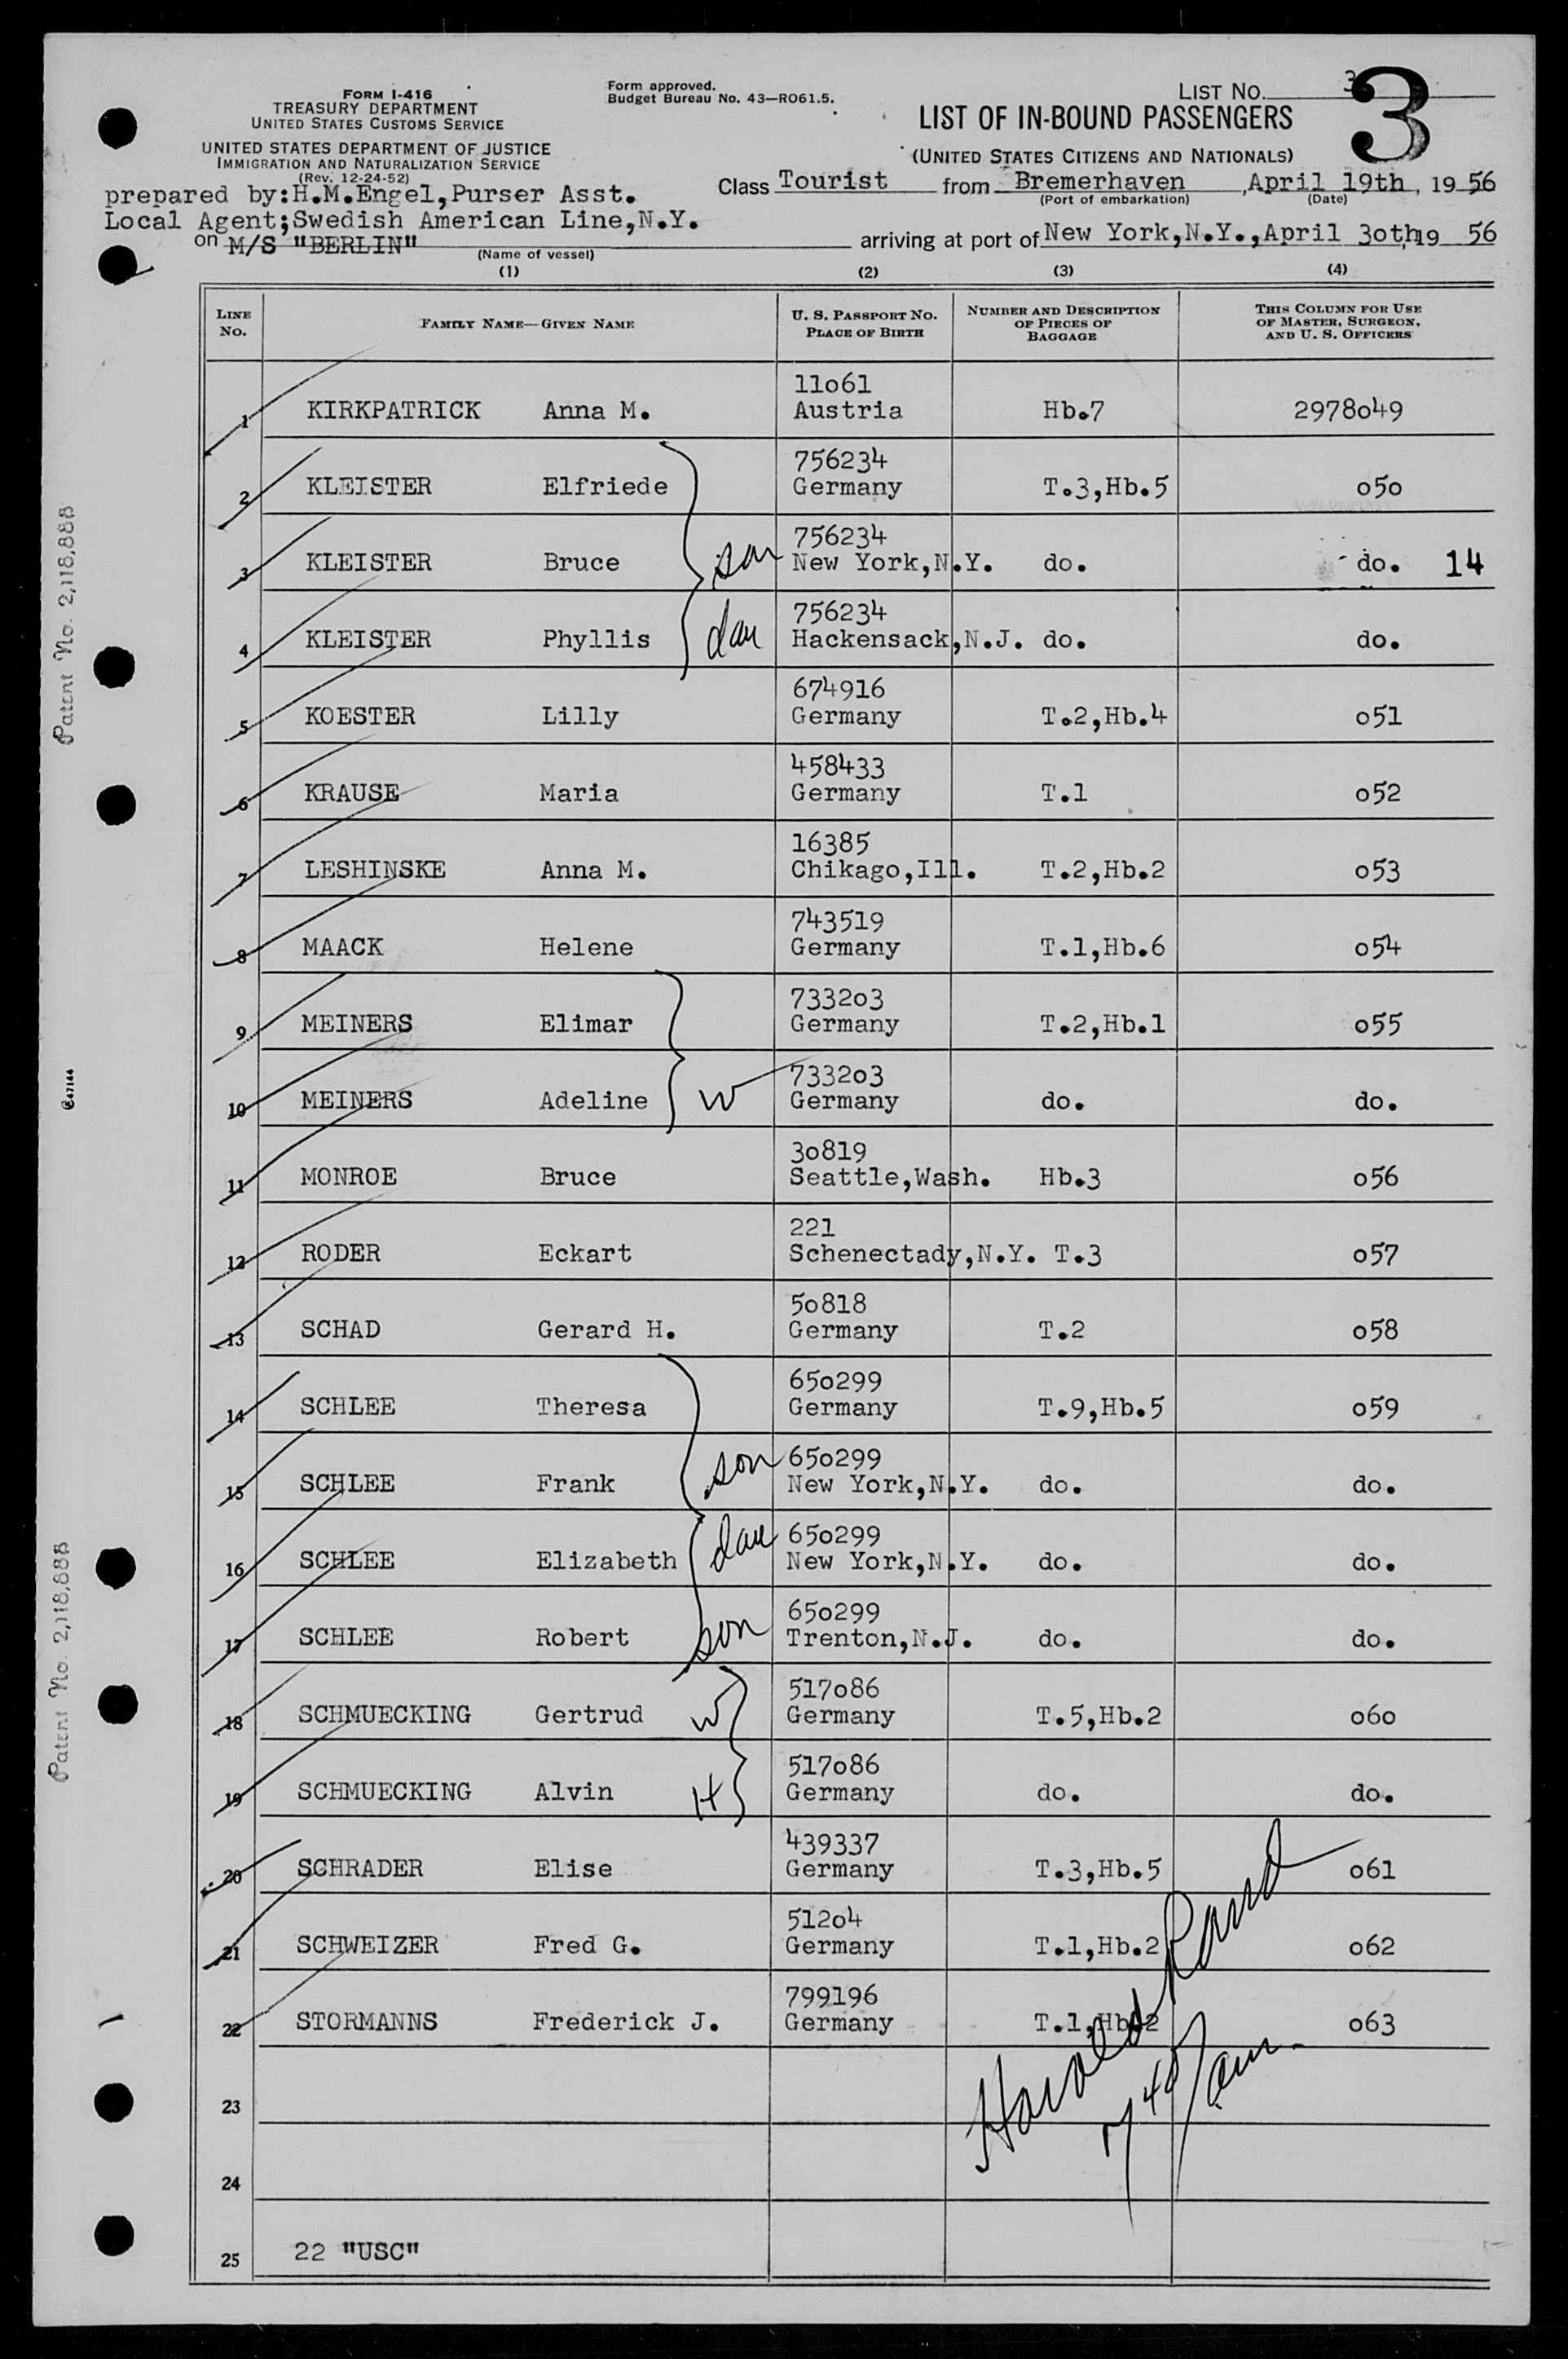 FORM I-416
TREASURY DEPARTMENT
UNITED STATES CUSTOMS SERVICE
UNITED STATES DEPARTMENT OF JUSTICE
IMMIGRATION AND NATURALIZATION SERVICE
(Rev. 12-24-52)
Form approved.
Budget Bureau No. 43—RO61.5.
LIST NO. 3
3
LIST OF IN-BOUND PASSENGERS
(UNITED STATES CITIZENS AND NATIONALS)
prepared by:H.M.Engel,Purser Asst.
Class Tourist from Bremerhaven ,April 19th, 1956
(Port of embarkation) (Date)
Local Agent;Swedish American Line,N.Y.
on M/S "BERLIN" arriving at port of New York,N.Y.,April 3oth,19 56
(Name of vessel)
(1) (2) (3) (4)
LINE NO. FAMILY NAME—GIVEN NAME U. S. PASSPORT NO. PLACE OF BIRTH NUMBER AND DESCRIPTION OF PIECES OF BAGGAGE THIS COLUMN FOR USE OF MASTER, SURGEON, AND U. S. OFFICERS
11o61
1 KIRKPATRICK Anna M. Austria Hb.7 2978o49
756234
2 KLEISTER Elfriede Germany T.3,Hb.5 o5o
756234
3 KLEISTER Bruce son New York,N.Y. do. do. 14
756234
4 KLEISTER Phyllis dau Hackensack,N.J. do. do.
674916
5 KOESTER Lilly Germany T.2,Hb.4 o51
458433
6 KRAUSE Maria Germany T.1 o52
16385
7 LESHINSKE Anna M. Chikago,Ill. T.2,Hb.2 o53
743519
8 MAACK Helene Germany T.1,Hb.6 o54
7332o3
9 MEINERS Elimar Germany T.2,Hb.1 o55
7332o3
10 MEINERS Adeline W Germany do. do.
3o819
11 MONROE Bruce Seattle,Wash. Hb.3 o56
221
12 RODER Eckart Schenectady,N.Y. T.3 o57
5o818
13 SCHAD Gerard H. Germany T.2 o58
65o299
14 SCHLEE Theresa Germany T.9,Hb.5 o59
65o299
15 SCHLEE Frank son New York,N.Y. do. do.
65o299
16 SCHLEE Elizabeth dau New York,N.Y. do. do.
65o299
17 SCHLEE Robert son Trenton,N.J. do. do.
517o86
18 SCHMUECKING Gertrud W Germany T.5,Hb.2 o6o
517o86
19 SCHMUECKING Alvin H Germany do. do.
439337
20 SCHRADER Elise Germany T.3,Hb.5 o61
512o4
21 SCHWEIZER Fred G. Germany T.1,Hb.2 o62
799196
22 STORMANNS Frederick J. Germany T.1,Hb.2 o63
Harold Rand
7 45/am.
23
24
25 22 "USC"
Patent No. 2,118,888
C47144
Patent No. 2,118,888